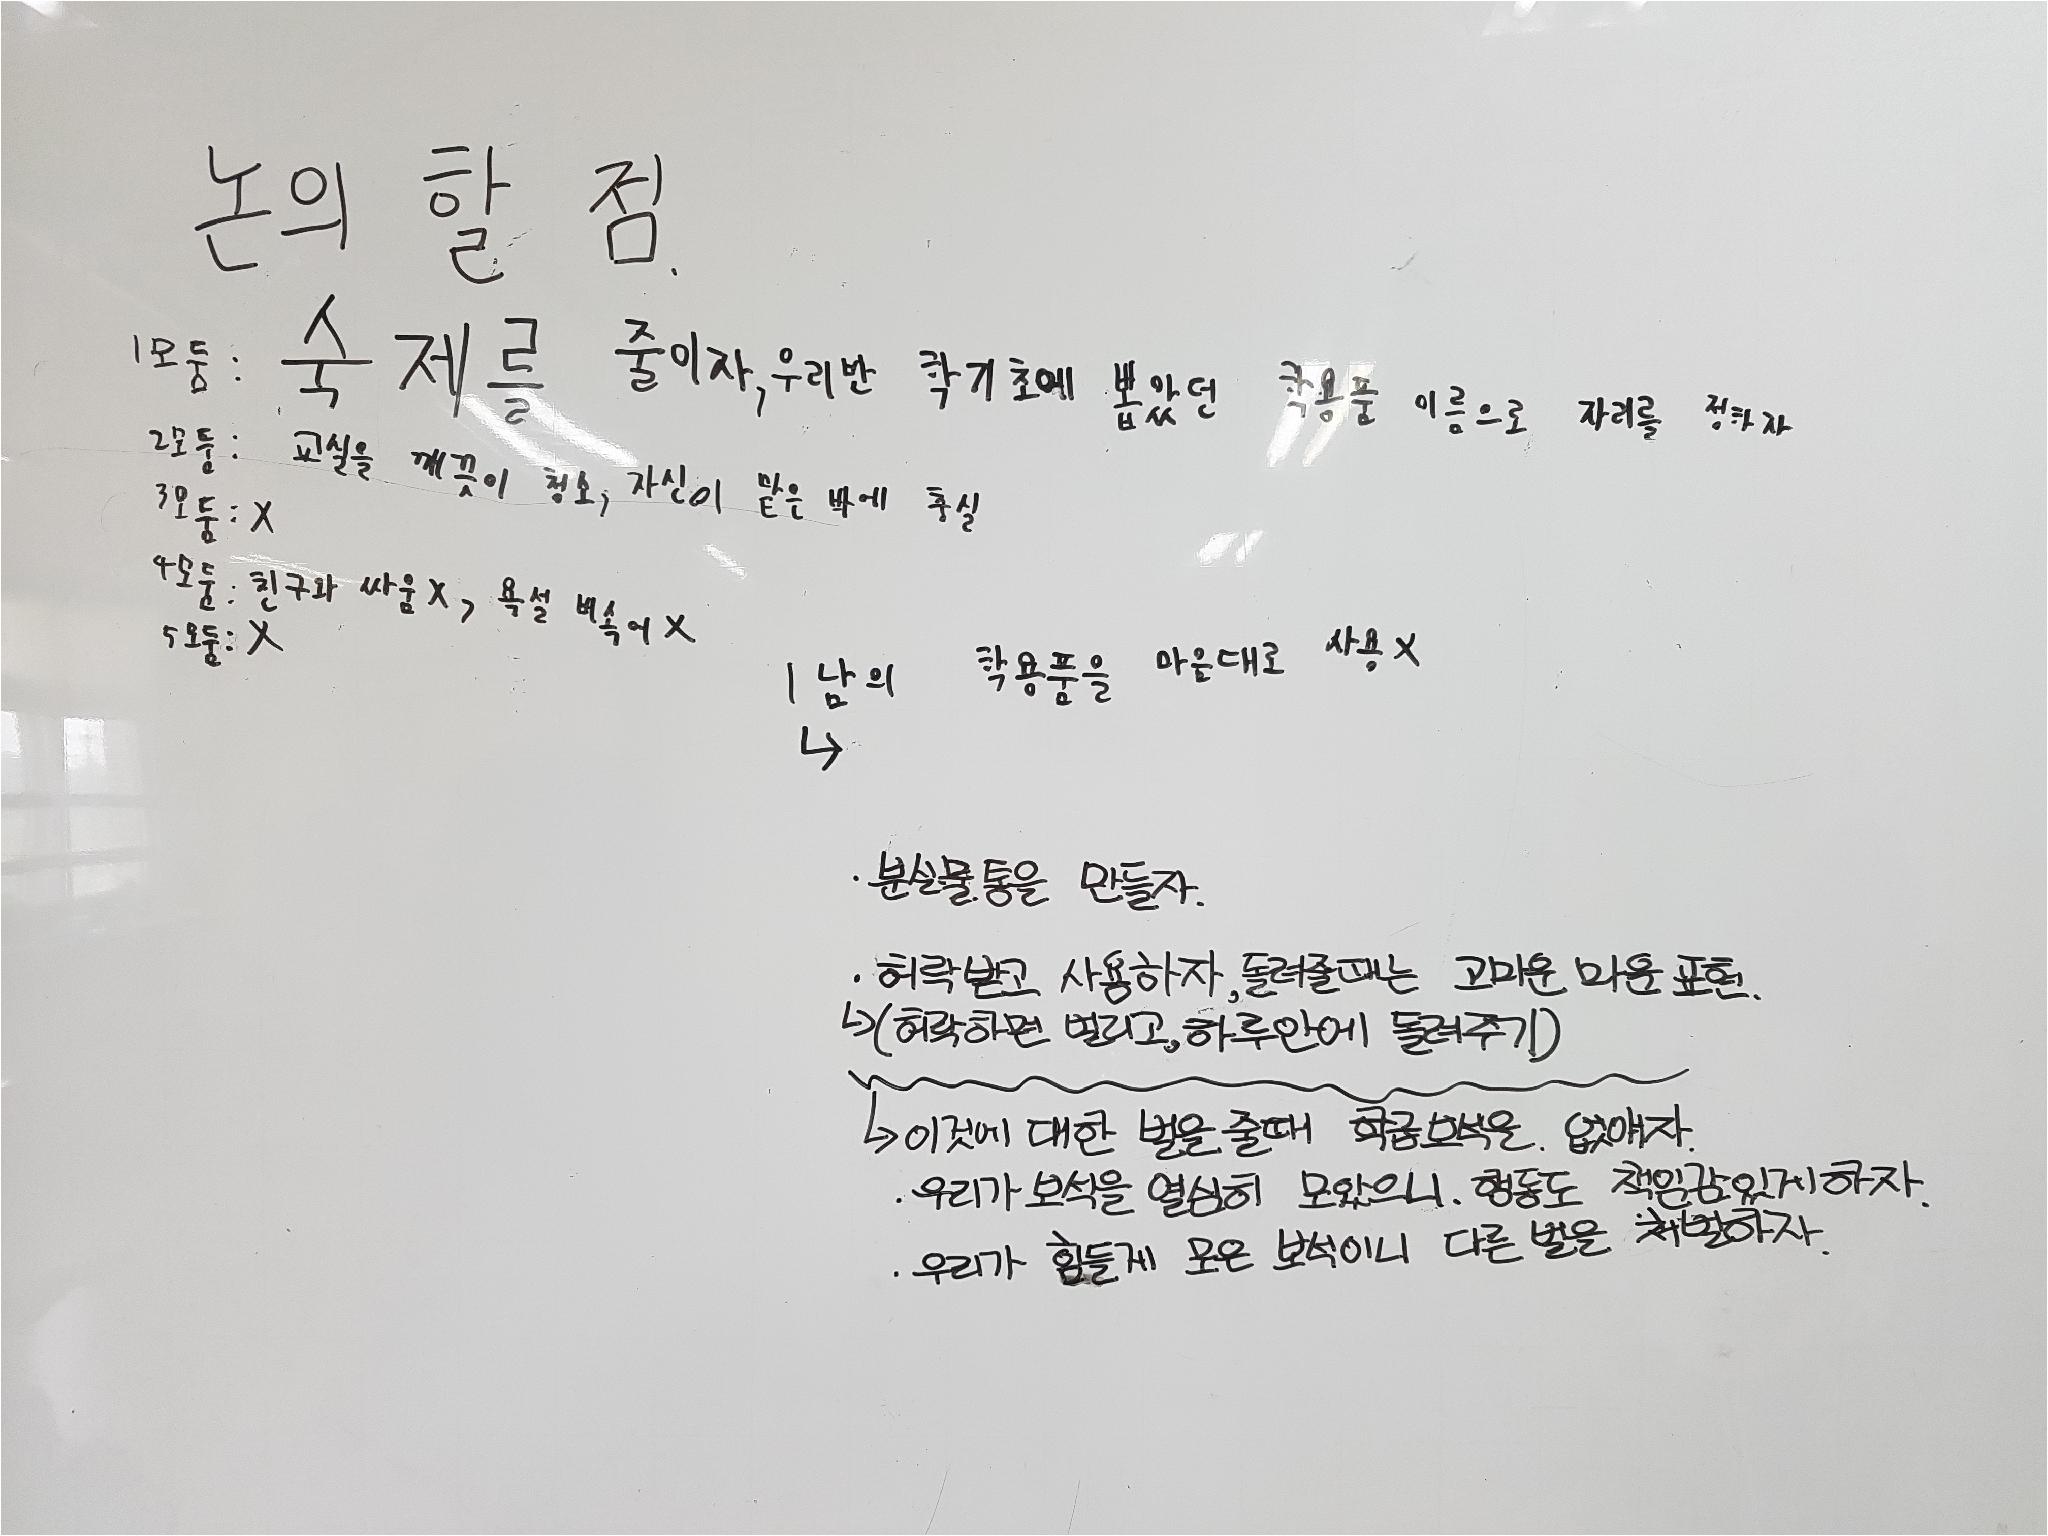 논의 할 점.
1모둠: 숙제를 줄이자, 우리반 학기초에 뽑았던 학용품 이름으로 자리를 정하자
2모둠: 교실을 깨끗이 청소, 자신이 맡은 바에 충실
3모둠: X
4모둠: 친구와 싸움X, 욕설 비속어 X
5모둠: X
1 남의 학용품을 마음대로 사용 X
↳
· 분실물통을 만들자.
· 허락받고 사용하자, 돌려줄때는 고마운 마음 표현.
↳(허락하면 빌리고, 하루안에 돌려주기)
↳이것에 대한 벌을 줄때 학급보석은 없애자.
· 우리가 보석을 열심히 모았으니. 행동도 책임감있게하자.
· 우리가 힘들게 모은 보석이니 다른 벌을 처벌하자.